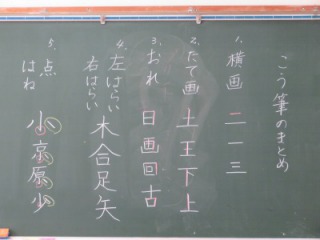 こう筆のまとめ
1. 横画 二一三
2. たて画 土王下上
3. おれ 日画回古
4. 左はらい 右はらい 木合足矢
5. 点 はね 小京原少